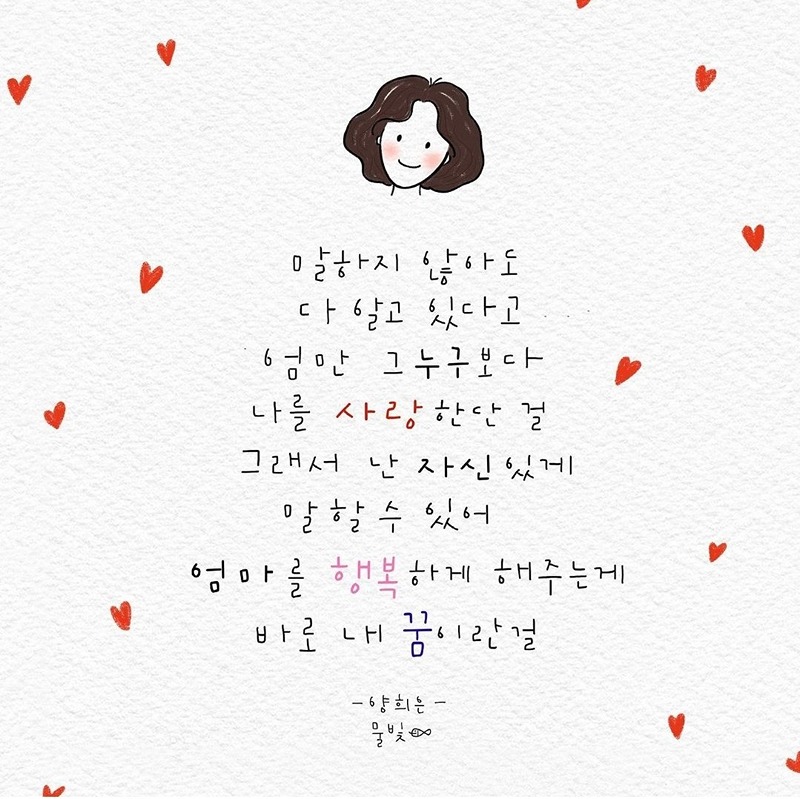 말하지 않아도
다 알고 있다고
엄만 그누구보다
나를 사랑한단 걸
그래서 난 자신있게
말할수 있어
엄마를 행복하게 해주는게
바로 내 꿈이란걸
- 양희은 -
물빛